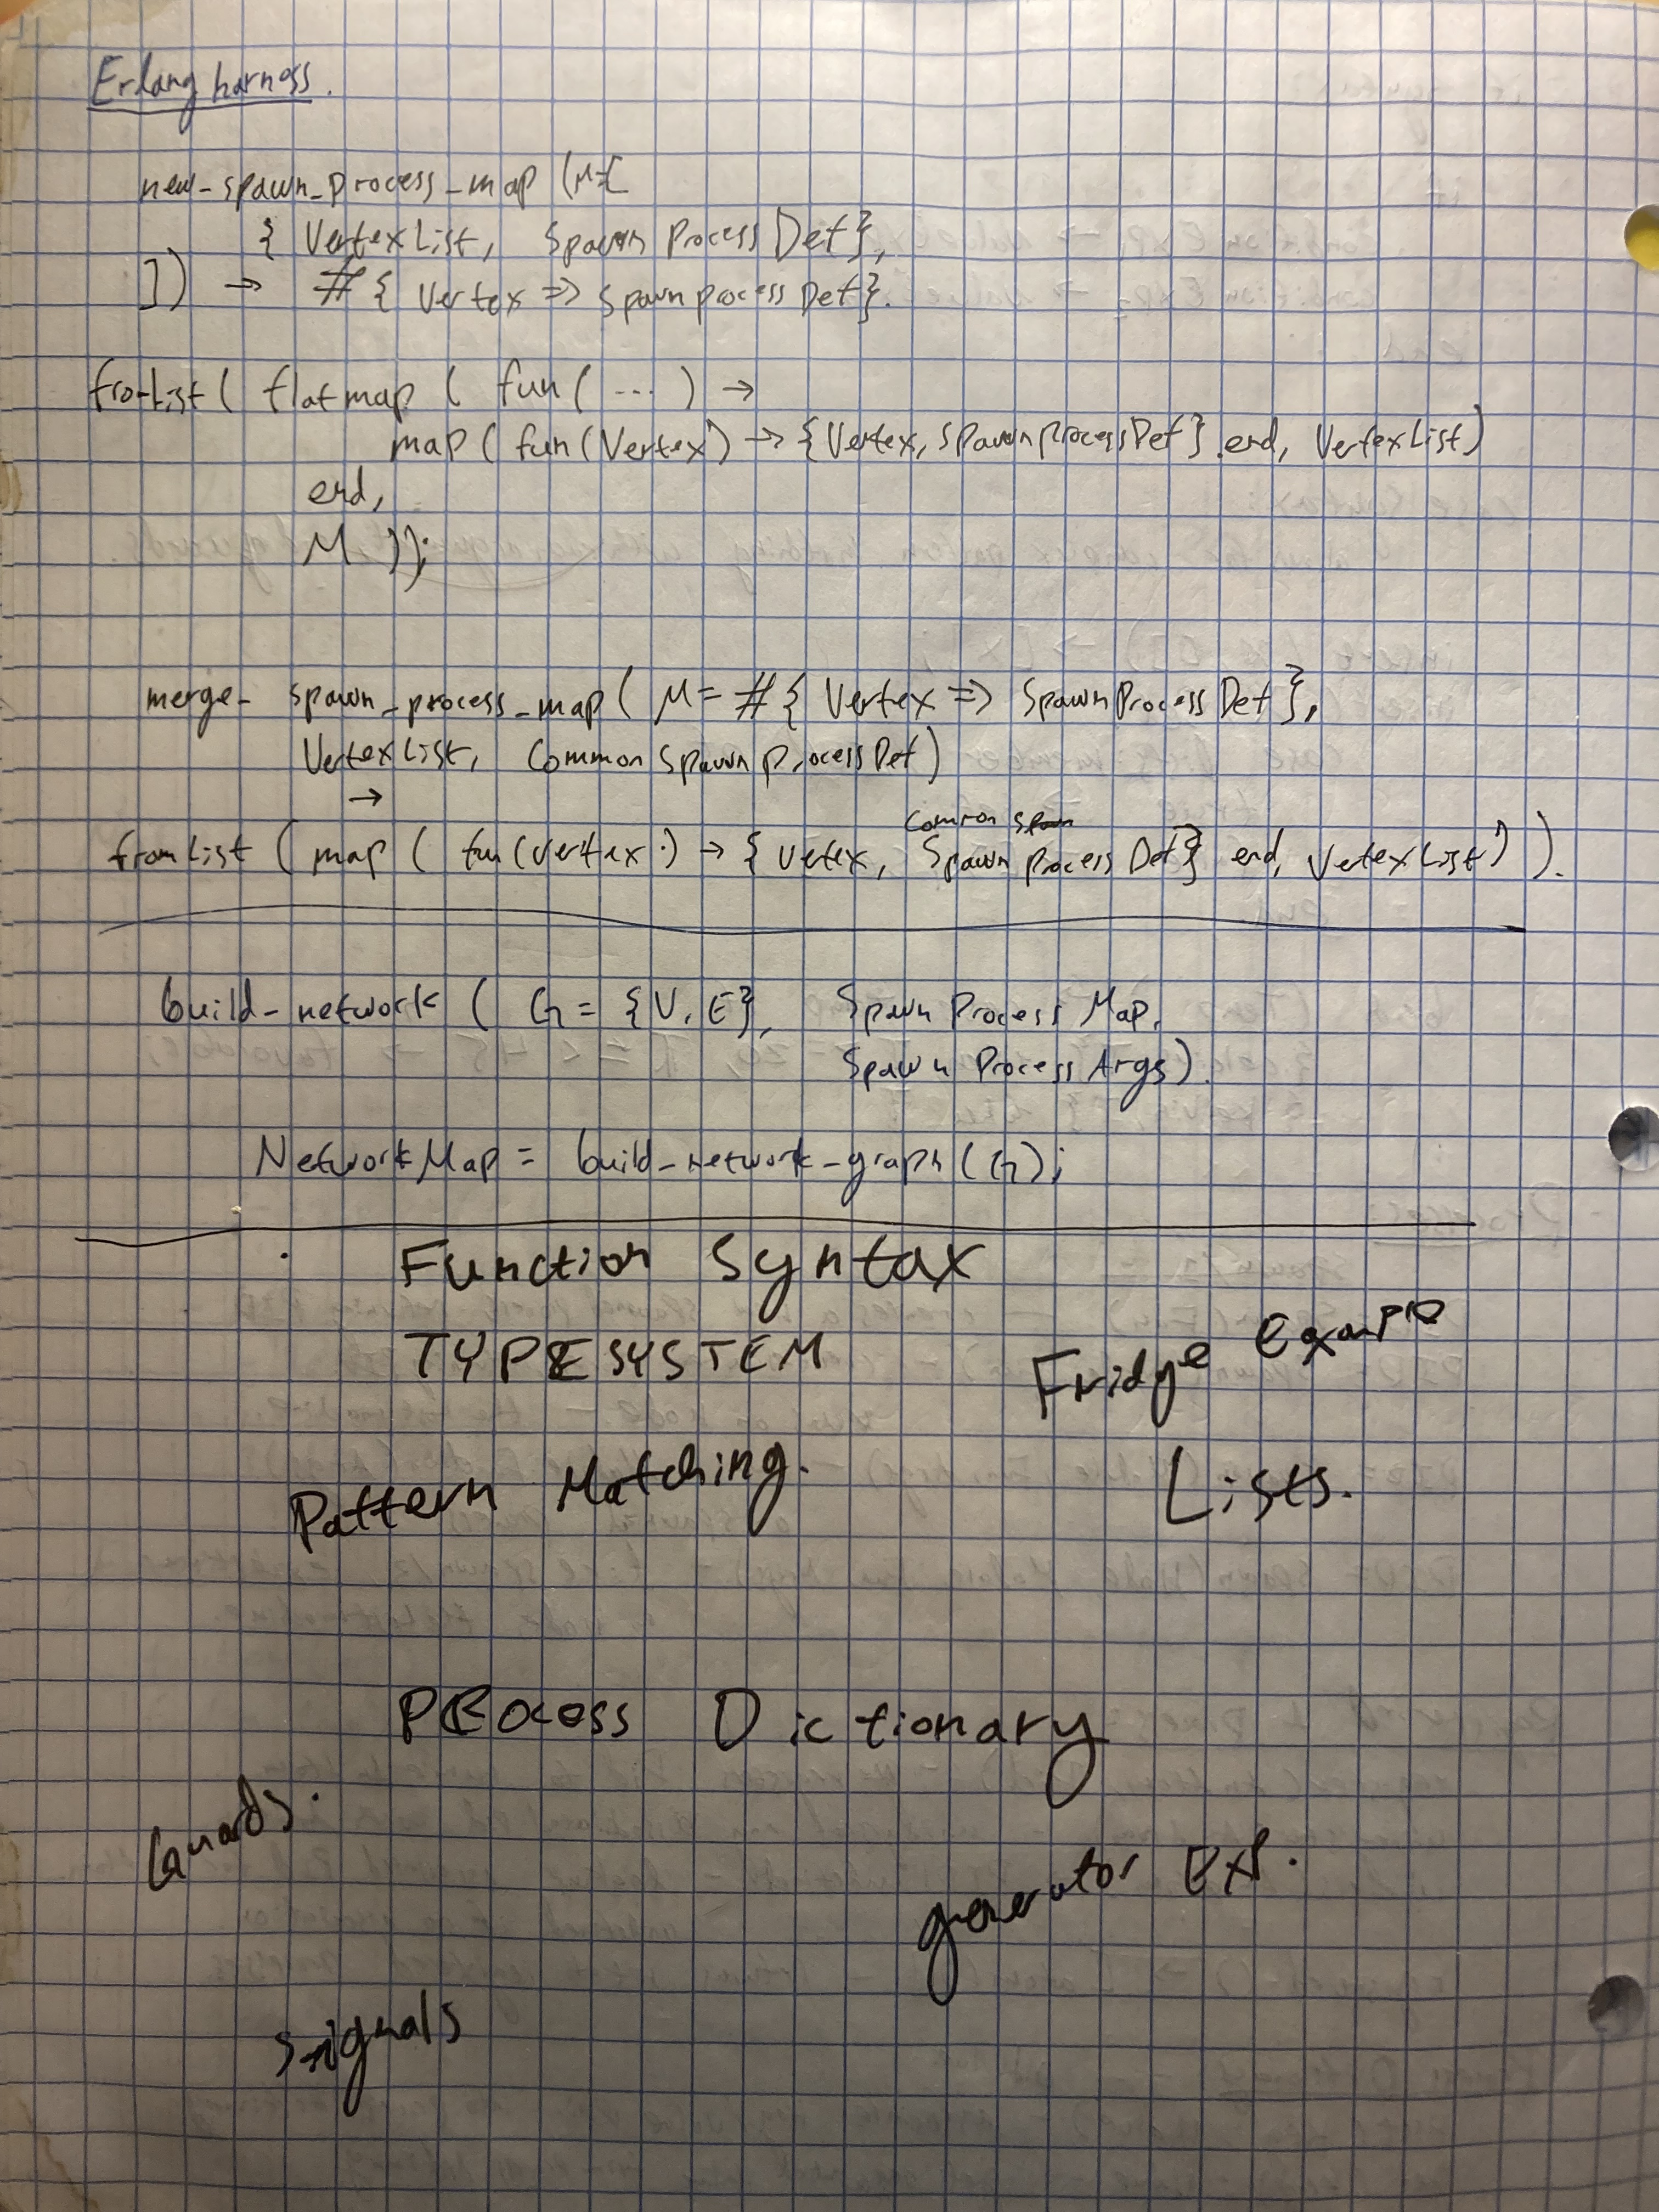 Erlang harness.
new_spawn_process_map (M=[
{ VertexList, SpawnProcessDef},
]) → #{ Vertex => SpawnprocessDef}.
fromList ( flatmap ( fun ( ... ) →
map ( fun (Vertex) → {Vertex, SpawnprocessDef} end, VertexList)
end,
M ));
merge_ spawn_process_map ( M = #{ Vertex => SpawnProcessDef},
VertexList, CommonSpawnProcessDef)
→
common
fromList ( map ( fun (Vertex) → { Vetex, SpawnProcessDef} end, VertexList ) ).
build_network ( G = {V, E}, SpawnProcessMap,
SpawnProcessArgs).
NetworkMap = build_network_graph (G);
Function Syntax
TYPESYSTEM
Fridge Example
Pattern Matching.
Lists.
PROcess Dictionary
Guards.
generator Exp.
signals